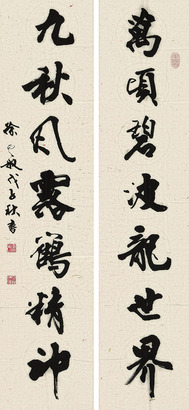 萬頃碧波龍世界
九秋風露鶴精神
徐又敏戊子秋書